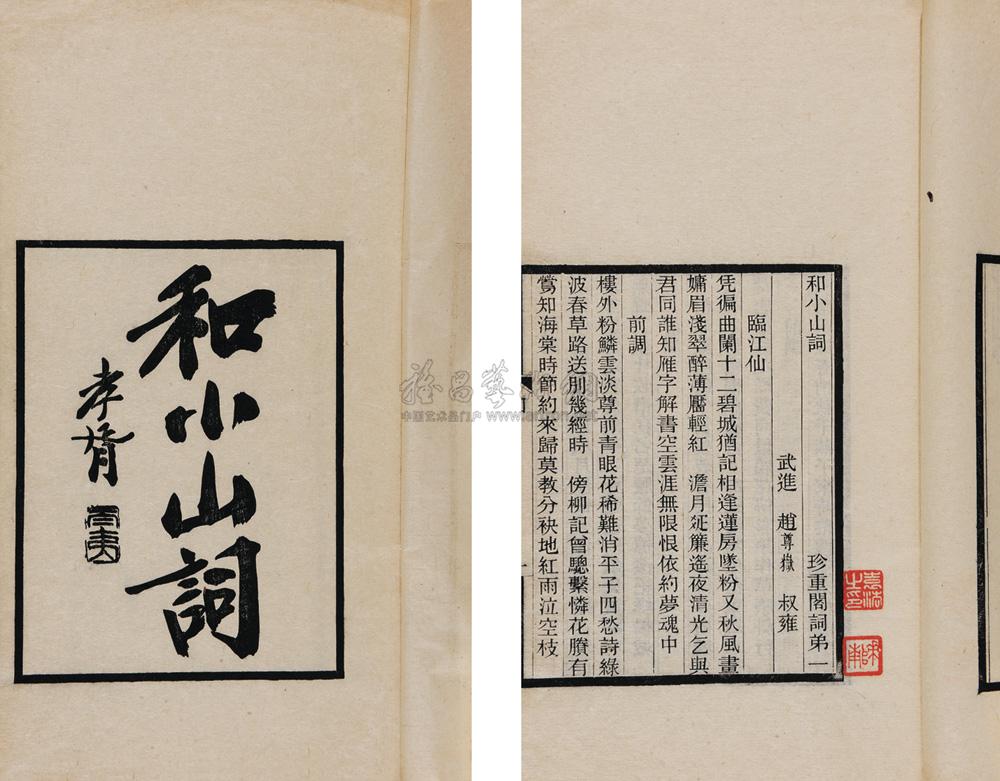 和小山詞
孝胥
和小山詞
珍重閣詞弟一
武進 趙尊嶽 叔雍
臨江仙
凭徧曲闌十二碧城猶記相逢蓮房墜粉又秋風畫
嫞眉淺翠醉薄靨輕紅 澹月延簾遙夜清光乞與
君同誰知雁字解書空雲涯無限恨依約夢魂中
前調
樓外粉鱗雲淡尊前青眼花稀難消平子四愁詩綠
波春草路送別幾經時 傍柳記曾驄繫憐花賸有
鶯知海棠時節約來歸莫教分袂地紅雨泣空枝
中国艺术品门户